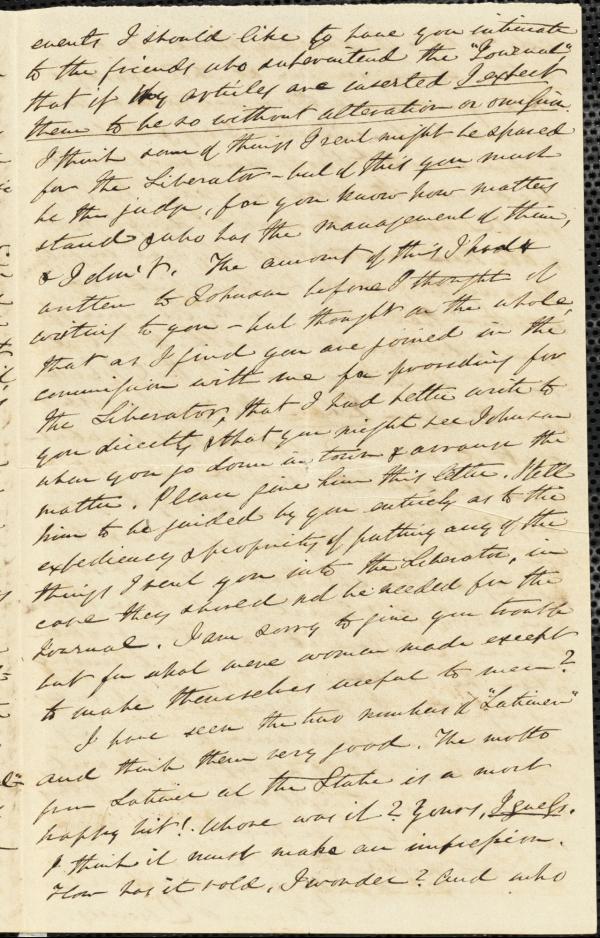 events I should like to have you intimate
to the friends who superintend the "Journal",
that if my articles are inserted I expect
them to be so without alteration or omission.
I think some of things I send might be spared
for the Liberator - but of this you must
be the judge, for you know how matters
stand & who has the management of them,
& I don't. The amount of this I had
written to Johnson before I thought of
writing to you - but thought on the whole,
that as I find you are joined in the
commission with me for providing for
the Liberator, that I had better write to
you directly & that you might see Johnson
when you go down in town & arrange the
matter. Please give him this letter, & tell
him to be guided by you entirely as to the
expediency & propriety of putting any of the
things I send you into the Liberator, in
case they should not be needed for the
Journal. I am sorry to give you trouble
but for what were women made except
to make themselves useful to men?
I have seen the two numbers of "Latimer"
and think them very good. The motto
from Latimer at the Stake is a most
happy hit! Whose was it? Yours, I guess.
I think it must make an impression.
How has it sold, I wonder? And who